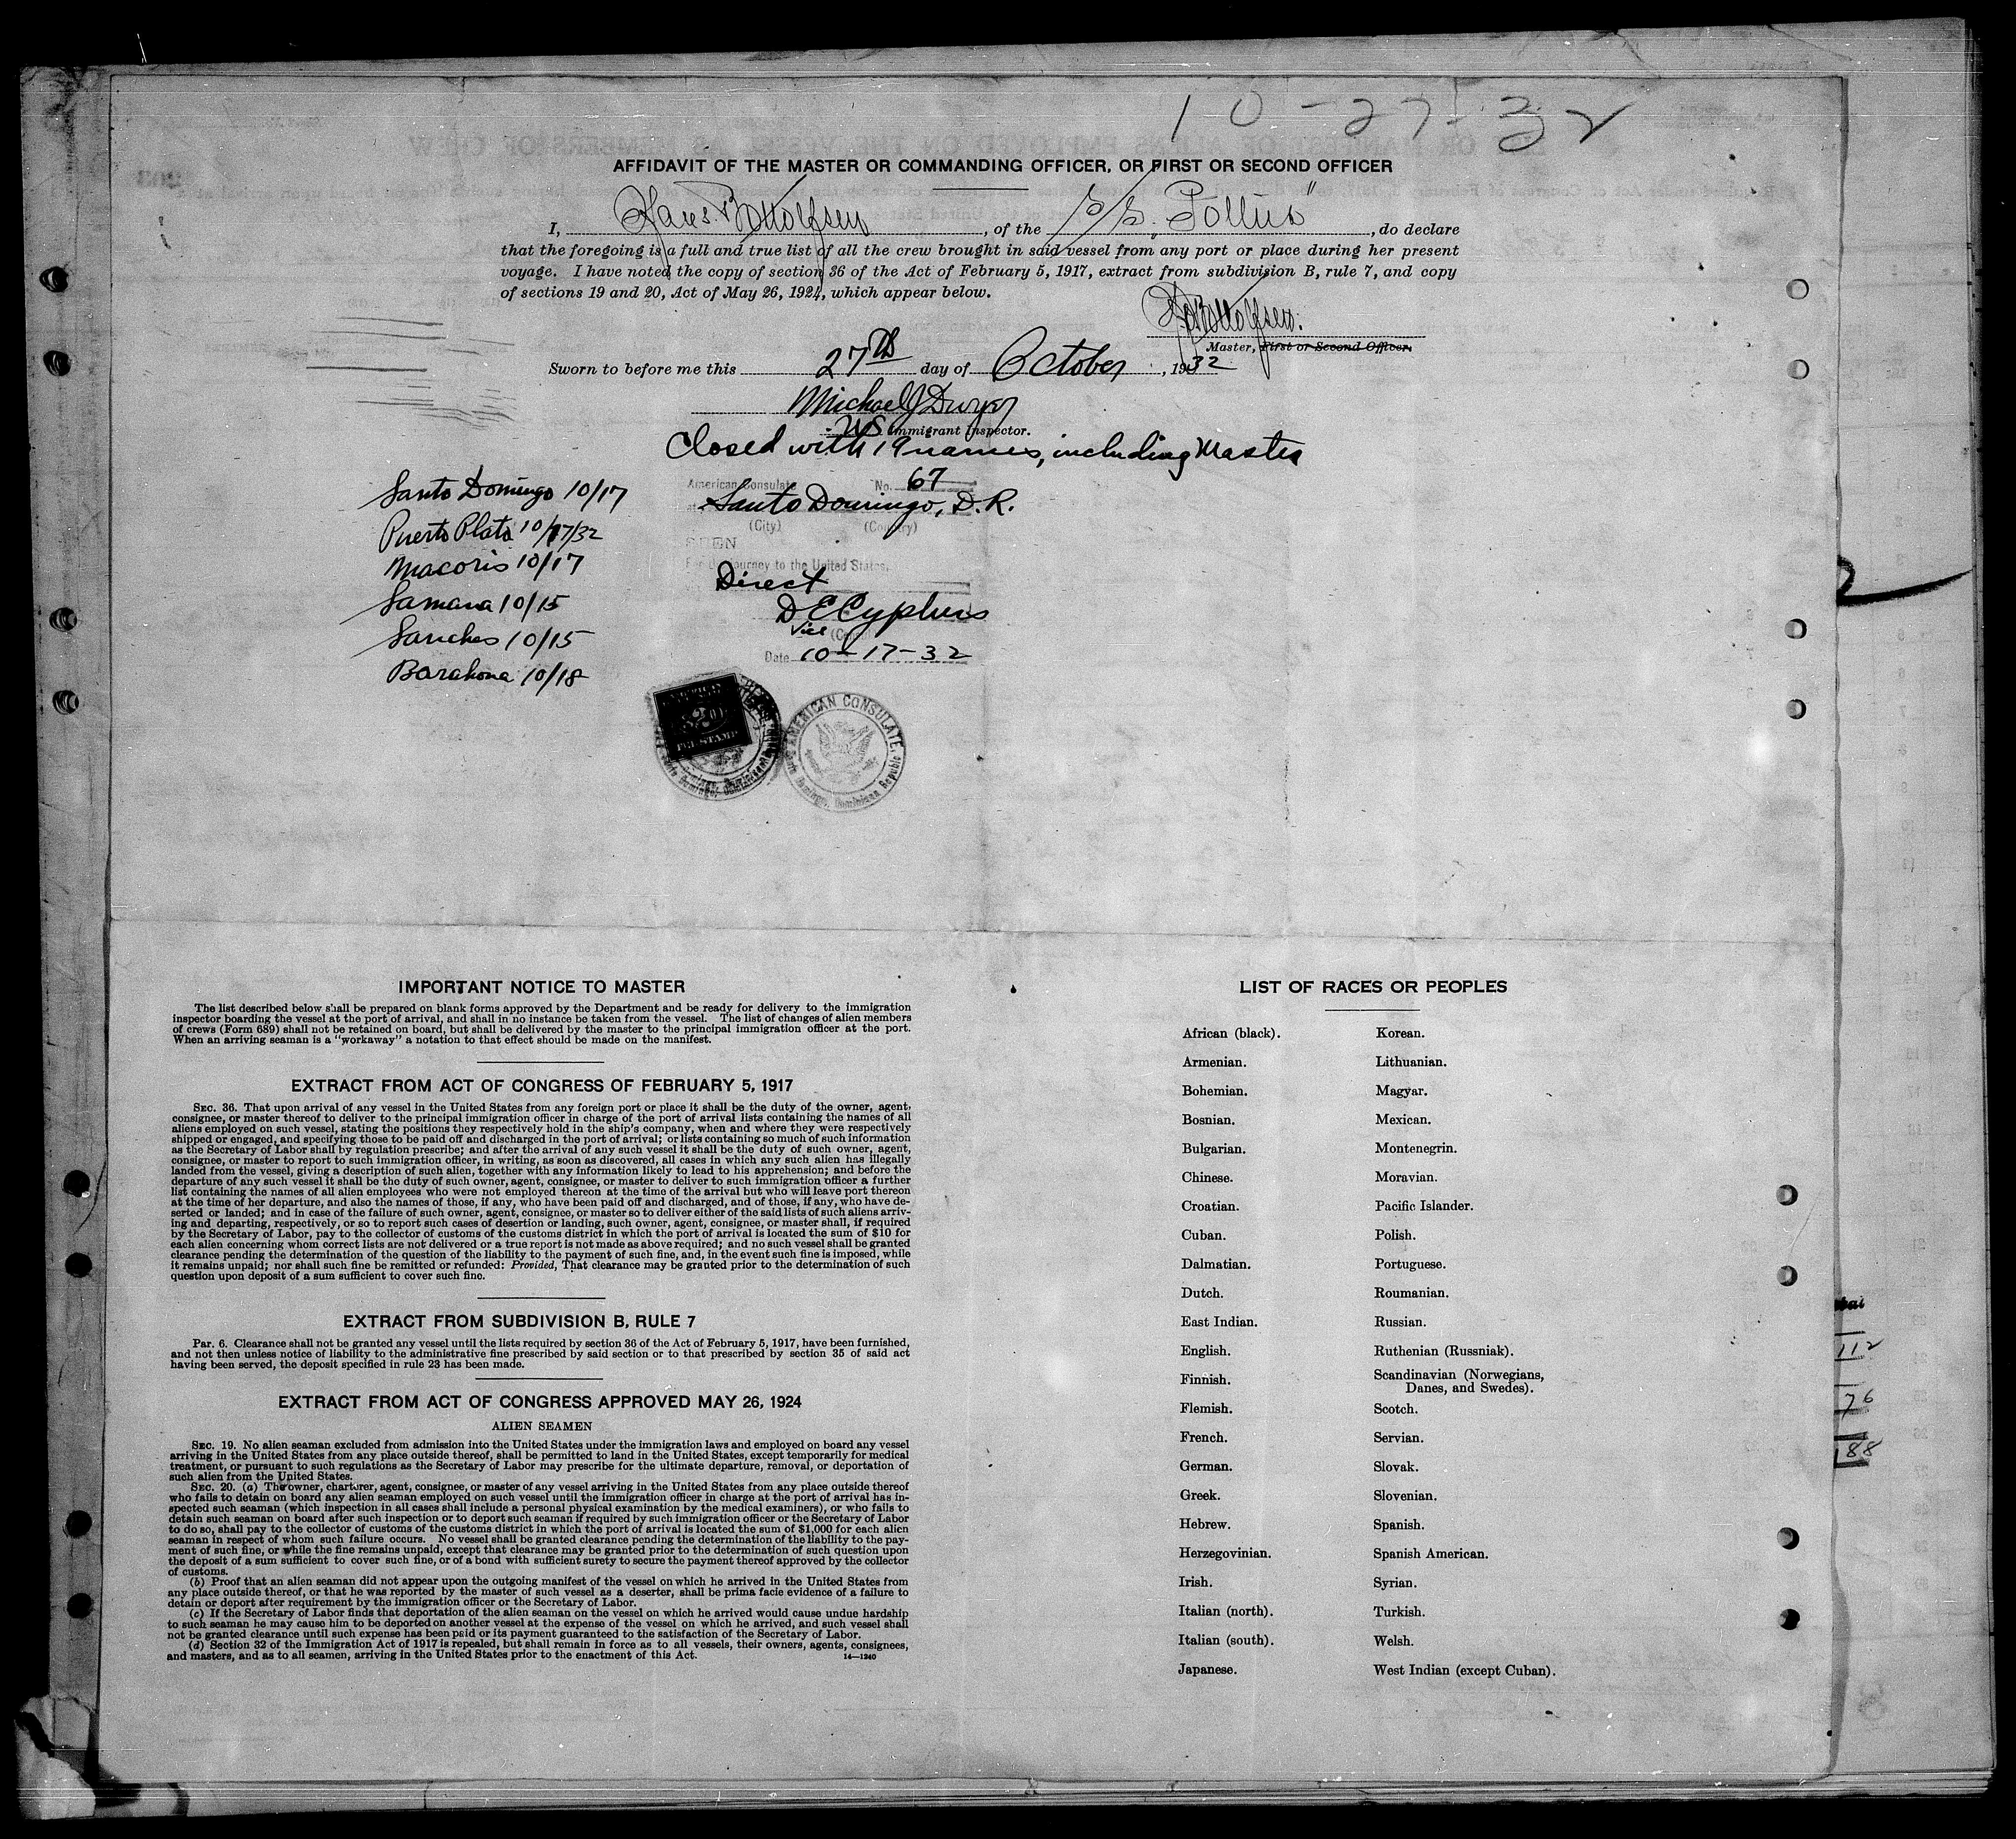 10-27-32
AFFIDAVIT OF THE MASTER OR COMMANDING OFFICER, OR FIRST OR SECOND OFFICER
I, Hans Bottolfsen, of the S/S. "Pollux", do declare
that the foregoing is a full and true list of all the crew brought in said vessel from any port or place during her present
voyage. I have noted the copy of section 36 of the Act of February 5, 1917, extract from subdivision B, rule 7, and copy
of sections 19 and 20, Act of May 26, 1924, which appear below.
H. Bottolfsen.
Master, First or Second Officer.
Sworn to before me this 27th day of October, 1932
Michael J Dwyer
US Immigrant Inspector.
Closed with 19 names, including Master
American Consulate No. 67
at Santo Domingo, D.R.
(City) (Country)
SEEN
For the journey to the United States.
Direct
D E Cyphers
Vice
Date 10-17-32
Santo Domingo 10/17
Puerto Plata 10/17/32
Macoris 10/17
Samana 10/15
Sanches 10/15
Barahona 10/18
AMERICAN CONSULATE,
Santo Domingo, Dominican Republic
FEE STAMP
IMPORTANT NOTICE TO MASTER
The list described below shall be prepared on blank forms approved by the Department and be ready for delivery to the immigration
inspector boarding the vessel at the port of arrival, and shall in no instance be taken from the vessel. The list of changes of alien members
of crews (Form 689) shall not be retained on board, but shall be delivered by the master to the principal immigration officer at the port.
When an arriving seaman is a "workaway" a notation to that effect should be made on the manifest.
EXTRACT FROM ACT OF CONGRESS OF FEBRUARY 5, 1917
SEC. 36. That upon arrival of any vessel in the United States from any foreign port or place it shall be the duty of the owner, agent,
consignee, or master thereof to deliver to the principal immigration officer in charge of the port of arrival lists containing the names of all
aliens employed on such vessel, stating the positions they respectively hold in the ship's company, when and where they were respectively
shipped or engaged, and specifying those to be paid off and discharged in the port of arrival; or lists containing so much of such information
as the Secretary of Labor shall by regulation prescribe; and after the arrival of any such vessel it shall be the duty of such owner, agent,
consignee, or master to report to such immigration officer, in writing, as soon as discovered, all cases in which any such alien has illegally
landed from the vessel, giving a description of such alien, together with any information likely to lead to his apprehension; and before the
departure of any such vessel it shall be the duty of such owner, agent, consignee, or master to deliver to such immigration officer a further
list containing the names of all alien employees who were not employed thereon at the time of the arrival but who will leave port thereon
at the time of her departure, and also the names of those, if any, who have been paid off and discharged, and of those, if any, who have de-
serted or landed; and in case of the failure of such owner, agent, consignee, or master so to deliver either of the said lists of such aliens arriv-
ing and departing, respectively, or so to report such cases of desertion or landing, such owner, agent, consignee, or master shall, if required
by the Secretary of Labor, pay to the collector of customs of the customs district in which the port of arrival is located the sum of $10 for
each alien concerning whom correct lists are not delivered or a true report is not made as above required; and no such vessel shall be granted
clearance pending the determination of the question of the liability to the payment of such fine, and, in the event such fine is imposed, while
it remains unpaid; nor shall such fine be remitted or refunded: Provided, That clearance may be granted prior to the determination of such
question upon deposit of a sum sufficient to cover such fine.
EXTRACT FROM SUBDIVISION B, RULE 7
PAR. 6. Clearance shall not be granted any vessel until the lists required by section 36 of the Act of February 5, 1917, have been furnished,
and not then unless notice of liability to the administrative fine prescribed by said section or to that prescribed by section 35 of said act
having been served, the deposit specified in rule 23 has been made.
EXTRACT FROM ACT OF CONGRESS APPROVED MAY 26, 1924
ALIEN SEAMEN
SEC. 19. No alien seaman excluded from admission into the United States under the immigration laws and employed on board any vessel
arriving in the United States from any place outside thereof, shall be permitted to land in the United States, except temporarily for medical
treatment, or pursuant to such regulations as the Secretary of Labor may prescribe for the ultimate departure, removal, or deportation of
such alien from the United States.
SEC. 20. (a) The owner, charterer, agent, consignee, or master of any vessel arriving in the United States from any place outside thereof
who fails to detain on board any alien seaman employed on such vessel until the immigration officer in charge at the port of arrival has in-
spected such seaman (which inspection in all cases shall include a personal physical examination by the medical examiners), or who fails to
detain such seaman on board after such inspection or to deport such seaman if required by such immigration officer or the Secretary of Labor
to do so, shall pay to the collector of customs of the customs district in which the port of arrival is located the sum of $1,000 for each alien
seaman in respect of whom such failure occurs. No vessel shall be granted clearance pending the determination of the liability to the pay-
ment of such fine, or while the fine remains unpaid, except that clearance may be granted prior to the determination of such question upon
the deposit of a sum sufficient to cover such fine, or of a bond with sufficient surety to secure the payment thereof approved by the collector
of customs.
(b) Proof that an alien seaman did not appear upon the outgoing manifest of the vessel on which he arrived in the United States from
any place outside thereof, or that he was reported by the master of such vessel as a deserter, shall be prima facie evidence of a failure to
detain or deport after requirement by the immigration officer or the Secretary of Labor.
(c) If the Secretary of Labor finds that deportation of the alien seaman on the vessel on which he arrived would cause undue hardship
to such seaman he may cause him to be deported on another vessel at the expense of the vessel on which he arrived, and such vessel shall
not be granted clearance until such expense has been paid or its payment guaranteed to the satisfaction of the Secretary of Labor.
(d) Section 32 of the Immigration Act of 1917 is repealed, but shall remain in force as to all vessels, their owners, agents, consignees,
and masters, and as to all seamen, arriving in the United States prior to the enactment of this Act.
14—1240
LIST OF RACES OR PEOPLES
African (black).
Armenian.
Bohemian.
Bosnian.
Bulgarian.
Chinese.
Croatian.
Cuban.
Dalmatian.
Dutch.
East Indian.
English.
Finnish.
Flemish.
French.
German.
Greek.
Hebrew.
Herzegovinian.
Irish.
Italian (north).
Italian (south).
Japanese.
Korean.
Lithuanian.
Magyar.
Mexican.
Montenegrin.
Moravian.
Pacific Islander.
Polish.
Portuguese.
Roumanian.
Russian.
Ruthenian (Russniak).
Scandinavian (Norwegians,
Danes, and Swedes).
Scotch.
Servian.
Slovak.
Slovenian.
Spanish.
Spanish American.
Syrian.
Turkish.
Welsh.
West Indian (except Cuban).
112
76
188